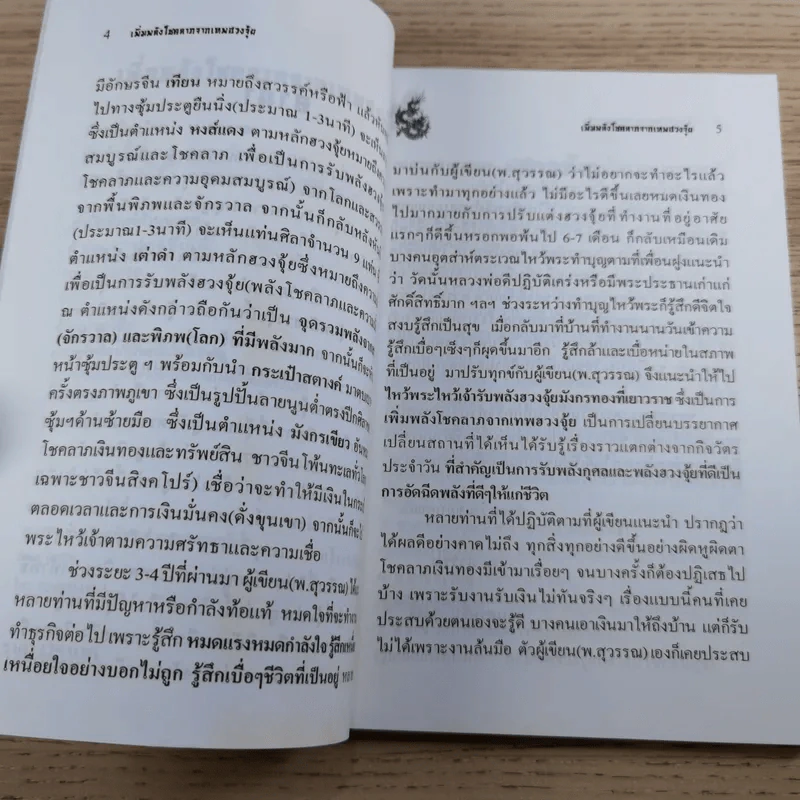 4 เพิ่มพลังโชคลาภจากเทพฮวงจุ้ย
มีอักษรจีน เทียน หมายถึงสวรรค์หรือฟ้า แล้ว
ไปทางซุ้มประตูยืนนิ่ง(ประมาณ 1-3นาที)
ซึ่งเป็นตำแหน่ง หงส์แดง ตามหลักฮวงจุ้ยหมายถึง
สมบูรณ์และโชคลาภ เพื่อเป็นการรับพลังฮวงจุ้ย
โชคลาภและความอุดมสมบูรณ์) จากโลกและ
จากพื้นพิภพและจักรวาล จากนั้นก็กลับหลัง
(ประมาณ1-3นาที) จะเห็นแท่นศิลาจำนวน 9
ตำแหน่ง เต่าดำ ตามหลักฮวงจุ้ยซึ่งหมายถึง
เพื่อเป็นการรับพลังฮวงจุ้ย(พลังโชคลาภและ
ณ ตำแหน่งดังกล่าวถือกันว่าเป็น จุดรวมพลัง
(จักรวาล) และพิภพ(โลก) ที่มีพลังมาก จากนั้นก็
หน้าซุ้มประตู ฯ พร้อมกับนำ กระเป๋าสตางค์
ครั้งตรงภาพภูเขา ซึ่งเป็นรูปปั้นลายนูนต่ำตรงปีกศิลา
ซุ้มฯด้านซ้ายมือ ซึ่งเป็นตำแหน่ง มังกรเขียว
โชคลาภเงินทองและทรัพย์สิน ชาวจีนโพ้นทะเล
เฉพาะชาวจีนสิงคโปร์) เชื่อว่าจะทำให้มีเงินใน
ตลอดเวลาและการเงินมั่นคง(ดั่งขุนเขา) จากนั้น
พระไหว้เจ้าตามความศรัทธาและความเชื่อ
ช่วงระยะ 3-4 ปีที่ผ่านมา ผู้เขียน(พ.สุวรรณ)
หลายท่านที่มีปัญหาหรือกำลังท้อแท้ หมดใจที่จะ
ทำธุรกิจต่อไป เพราะรู้สึก หมดแรงหมดกำลังใจ
เหนื่อยใจอย่างบอกไม่ถูก รู้สึกเบื่อๆชีวิตที่เป็นอยู่
เพิ่มพลังโชคลาภจากเทพฮวงจุ้ย 5
มาบ่นกับผู้เขียน(พ.สุวรรณ) ว่าไม่อยากจะทำอะไรแล้ว
เพราะทำมาทุกอย่างแล้ว ไม่มีอะไรดีขึ้นเลยหมดเงินทอง
ไปมากมายกับการปรับแต่งฮวงจุ้ยที่ทำงานที่อยู่อาศัย
แรกๆก็ดีขึ้นหรอกพอพ้นไป 6-7 เดือน ก็กลับเหมือนเดิม
บางคนอุตส่าห์ตระเวณไหว้พระทำบุญตามที่เพื่อนฝูงแนะนำ
ว่า วัดนั้นหลวงพ่อดีปฏิบัติเคร่งหรือมีพระประธานเก่าแก่
ศักดิ์สิทธิ์มาก ฯลฯ ช่วงระหว่างทำบุญไหว้พระก็รู้สึกดีจิตใจ
สงบรู้สึกเป็นสุข เมื่อกลับมาที่บ้านที่ทำงานนานวันเข้าความ
รู้สึกเบื่อๆเซ็งๆก็ผุดขึ้นมาอีก รู้สึกล้าและเบื่อหน่ายในสภาพ
ที่เป็นอยู่ มาปรับทุกข์กับผู้เขียน(พ.สุวรรณ) จึงแนะนำให้ไป
ไหว้พระไหว้เจ้ารับพลังฮวงจุ้ยมังกรทองที่เยาวราช ซึ่งเป็นการ
เพิ่มพลังโชคลาภจากเทพฮวงจุ้ย เป็นการเปลี่ยนบรรยากาศ
เปลี่ยนสถานที่ได้เห็นได้รับรู้เรื่องราวแตกต่างจากกิจวัตร
ประจำวัน ที่สำคัญเป็นการรับพลังกุศลและพลังฮวงจุ้ยที่ดีเป็น
การอัดฉีดพลังที่ดีๆให้แก่ชีวิต
หลายท่านที่ได้ปฏิบัติตามที่ผู้เขียนแนะนำ ปรากฏว่า
ได้ผลดีอย่างคาดไม่ถึง ทุกสิ่งทุกอย่างดีขึ้นอย่างผิดหูผิดตา
โชคลาภเงินทองมีเข้ามาเรื่อยๆ จนบางครั้งก็ต้องปฏิเสธไป
บ้าง เพราะรับงานรับเงินไม่ทันจริงๆ เรื่องแบบนี้คนที่เคย
ประสบด้วยตนเองจะรู้ดี บางคนเอาเงินมาให้ถึงบ้าน แต่ก็รับ
ไม่ได้เพราะงานล้นมือ ตัวผู้เขียน(พ.สุวรรณ)เองก็เคยประสบ